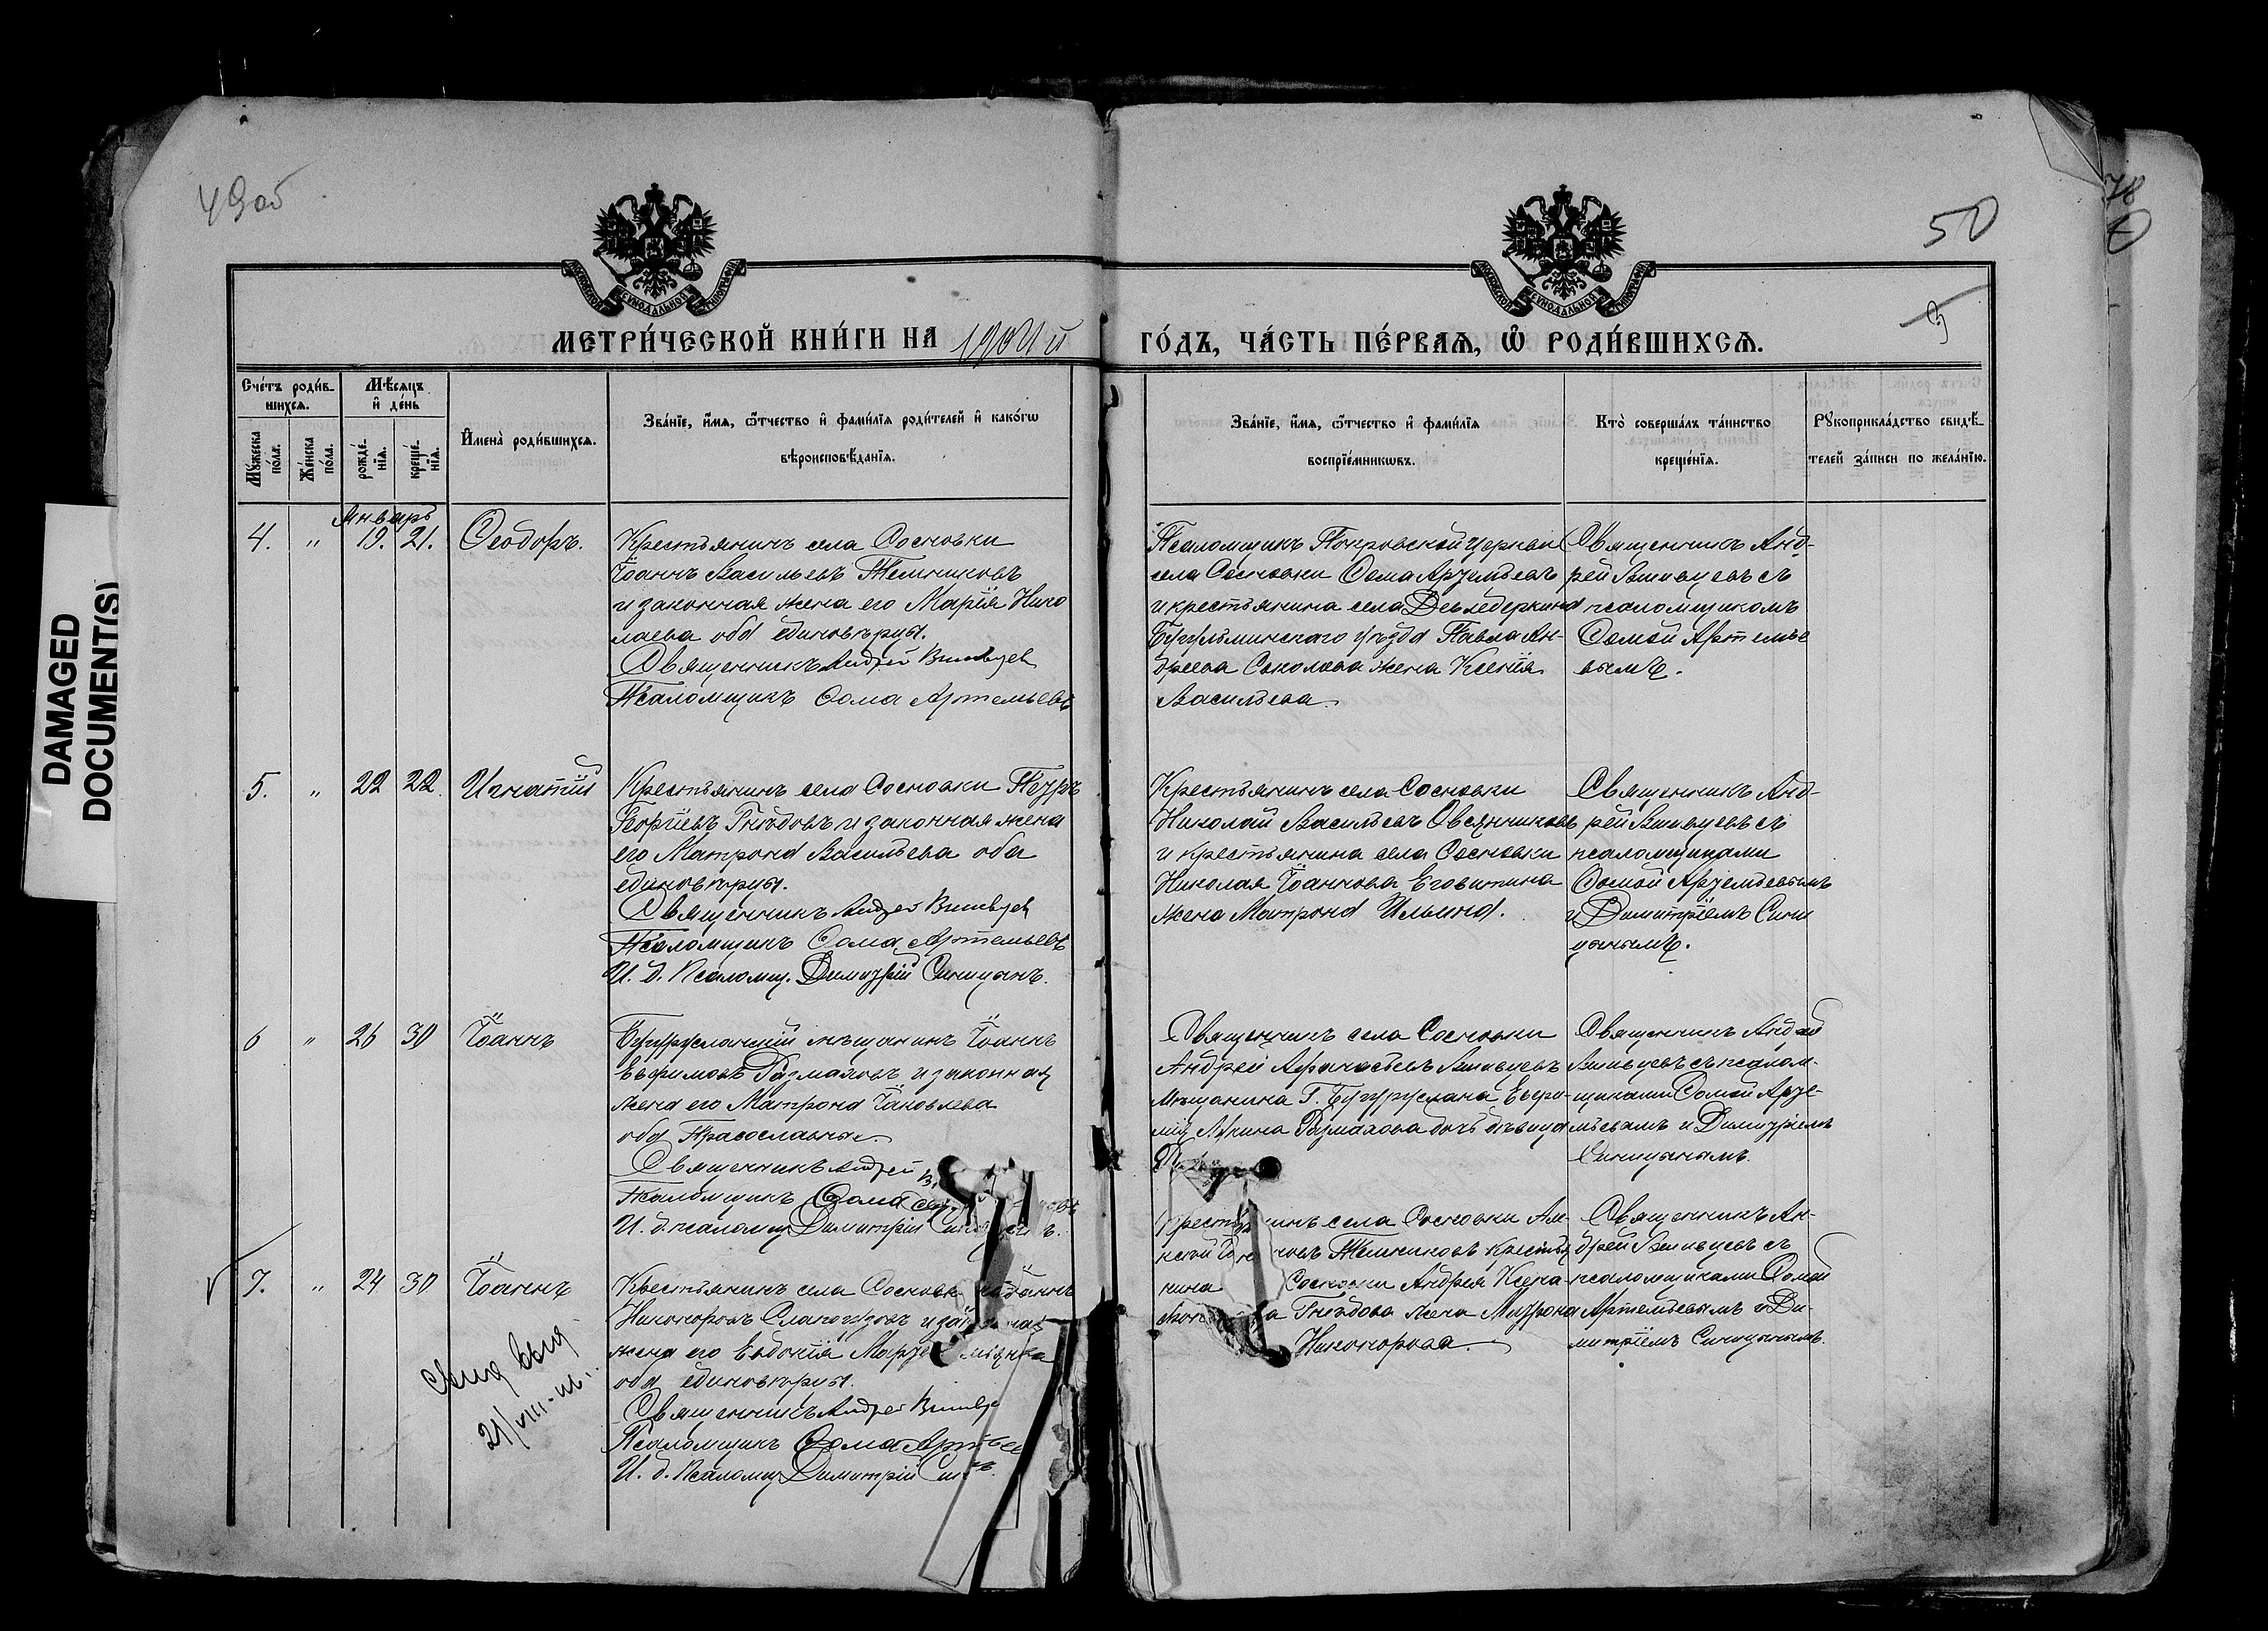 49об
50
3
78
DAMAGED
DOCUMENT(S)
МОСКОВСКОЙ СѴНОДАЛЬНОЙ ТИПОГРАФІИ
МОСКОВСКОЙ СѴНОДАЛЬНОЙ ТИПОГРАФІИ
МЕТРИ́ЧЕСКОЙ КНИ́ГИ НА 1904 й ГО́ДЪ, ЧА́СТЬ ПЕ́РВАѦ, Ѡ РОДИ́ВШИХСѦ.
Сче́тъ роди́в-
шихсѧ.
Мꙋ́жеска по́ла.
Же́нска по́ла.
Мѣ́сѧцъ
и҆ де́нь
рожде́-
нїѧ.
креще́-
нїѧ.
И҆мена̀ роди́вшихсѧ.
Зва́нїе, и҆́мѧ, ѻ҆́тчество и҆ фами́лїѧ роди́телей и҆ како́гѡ
вѣроисповѣ́данїѧ.
Зва́нїе, и҆́мѧ, ѻ҆́тчество и҆ фами́лїѧ
воспрїе́мникѡвъ.
Кто̀ соверша́лъ та́инство
креще́нїѧ.
Рꙋкоприкла́дство свидѣ́-
телей за́писи по жела́нїю.
Январь
4. " 19. 21. Ѳеодоръ.
Крестьянинъ села Сосновки
Іоаннъ Васильевъ Мельниковъ
и законная жена его Марія Нико
лаева оба единовѣрцы.
Священникъ Андрей Вшивцев
Псаломщикъ Ѳома Артемьевъ
Псаломщикъ Покровской церкви
села Сосновки Ѳома Артемьевъ
и крестьянина села
Бугульминскаго уѣзда Павла Ан-
дреева Соколова жена Ксенія
Васильева.
Священникъ Анд-
рей Вшивцевъ съ
псаломщикомъ
Ѳомой Артемье
вымъ.
5. " 22 22. Игнатій
Крестьянинъ села Сосновки Петръ
Георгіевъ Гнѣдовъ и законная жена
его Матрона Васильева оба
единовѣрцы.
Священникъ Андрей Вшивцев
Псаломщикъ Ѳома Артемьевъ
И. д. псаломщ. Димитрій Синицынъ.
Крестьянинъ села Сосновки
Николай Васильевъ Овсянниковъ
и крестьянина села Сосновки
Николая Іоаннова Еговитина
жена Матрона Ильина.
Священникъ Анд-
рей Вшивцевъ съ
псаломщиками
Ѳомой Артемьевымъ
и Димитріемъ Сини
цынымъ.
6 " 26 30 Іоаннъ
Бугурусланскій мѣщанинъ Іоаннъ
Евѳимовъ Размаховъ и законная
жена его Матрона Іаковлева
оба Православные.
Священникъ Андрей В
Псаломщикъ Ѳома
И. д. псаломщ Димитрій
Священникъ села Сосновки
Андрей Аѳанасьевъ Вшивцевъ
Мѣщанина Г. Бугуруслана Евѳи-
мія Размахова дочь дѣвица
Священникъ Андрей
Вшивцевъ съ псалом-
щиками Ѳомой Арте-
мьевымъ и Димитріемъ
Синицынымъ.
7. " 24 30 Іоаннъ
Крестьянинъ села Сосновки Іоаннъ
Никоноровъ и законная
жена его Евдокія
оба единовѣрцы.
Священникъ Андрей Вшивц
Псаломщикъ Ѳома Артьев
И. д. псаломщ Димитрій
Крестьянинъ села Сосновки
Мельниковъ крестья
нина Сосновки Андрея
Гнѣдова жена Матрона
Никонорова.
Священникъ Ан-
дрей Вшивцевъ съ
псаломщиками Ѳомой
Артемьевымъ и Ди-
митріемъ Синицынымъ.
21/VIII-